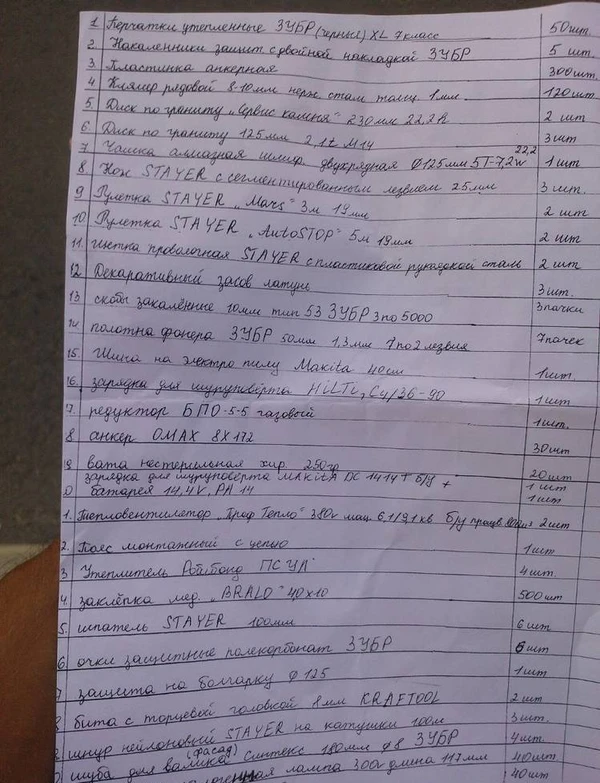 1 Перчатки утепленные ЗУБР (черные) XL 7 класс 50 шт.
2. Наколенники защит с двойной накладкой ЗУБР 5 шт.
3 Пластинка анкерная 300 шт.
4 Кляймер рядовой 8-10 мм нерж стал толщ 1 мм. 120 шт.
5 Диск по граниту "Сервис камня" 230 мм 22,2 2 шт
6 Диск по граниту 125 мм 2,1t М14 3 шт
7 Чашка алмазная шлиф. двухрядная Ф 125 мм 5Т-7,2w 22,2 1 шт
8. Нож STAYER с сегментированным лезвием 25 мм 3 шт.
9 Рулетка STAYER "Mars" 3м 19 мм 2 шт
10 Рулетка STAYER "AutoSTOP" 5м 19 мм 2 шт
11. щетка проволочная STAYER с пластиковой рукадкой сталь 2 шт
12 Декаративный засов латун 3 шт.
13. скобы закалённые 10 мм тип 53 ЗУБР 3 по 5000 3 пачки
14. полотна фанера ЗУБР 50 мм 1,3 мм 7 по 2 лезвия 7 пачек
15. Шина на электро пилу Makita 40 см 1 шт
16. зарядка для шуруповёрта HiLTi C4/36-90 1 шт
7. редуктор БПО-5-5 газовый 1 шт.
8 анкер OMAX 8X172 30 шт
19 вата нестерильная хир. 250 гр 20 шт
зарядка для шуруповёрта MAKITA DC 1414 T б/у + 1 шт
0 батарея 14,4V, PA 14 1 шт
1. Тепловентилятор "Проф Тепло" 380v мащ. 6,1/9,1 кв б/у 2 шт
2. Пояс монтажный с цепью 1 шт.
3 Утеплитель ПСУЛ 4 шт.
4. заклёпка мед. "BRALO" 40х10 500 шт
5. шпатель STAYER 100 мм 6 шт
6 очки защитные поликорбонат ЗУБР 6 шт
7 защита на болгарку Ф 125 1 шт
8 бита с торцевой головкой 8 мм KRAFTOOL 2 шт
шнур нейлоновый STAYER на катушки 100м 3 шт.
шуба для валика (фасад) синтекс 180 мм Ф8 ЗУБР 4 шт.
лампа 300w длина 117 мм 40 шт
40 шт